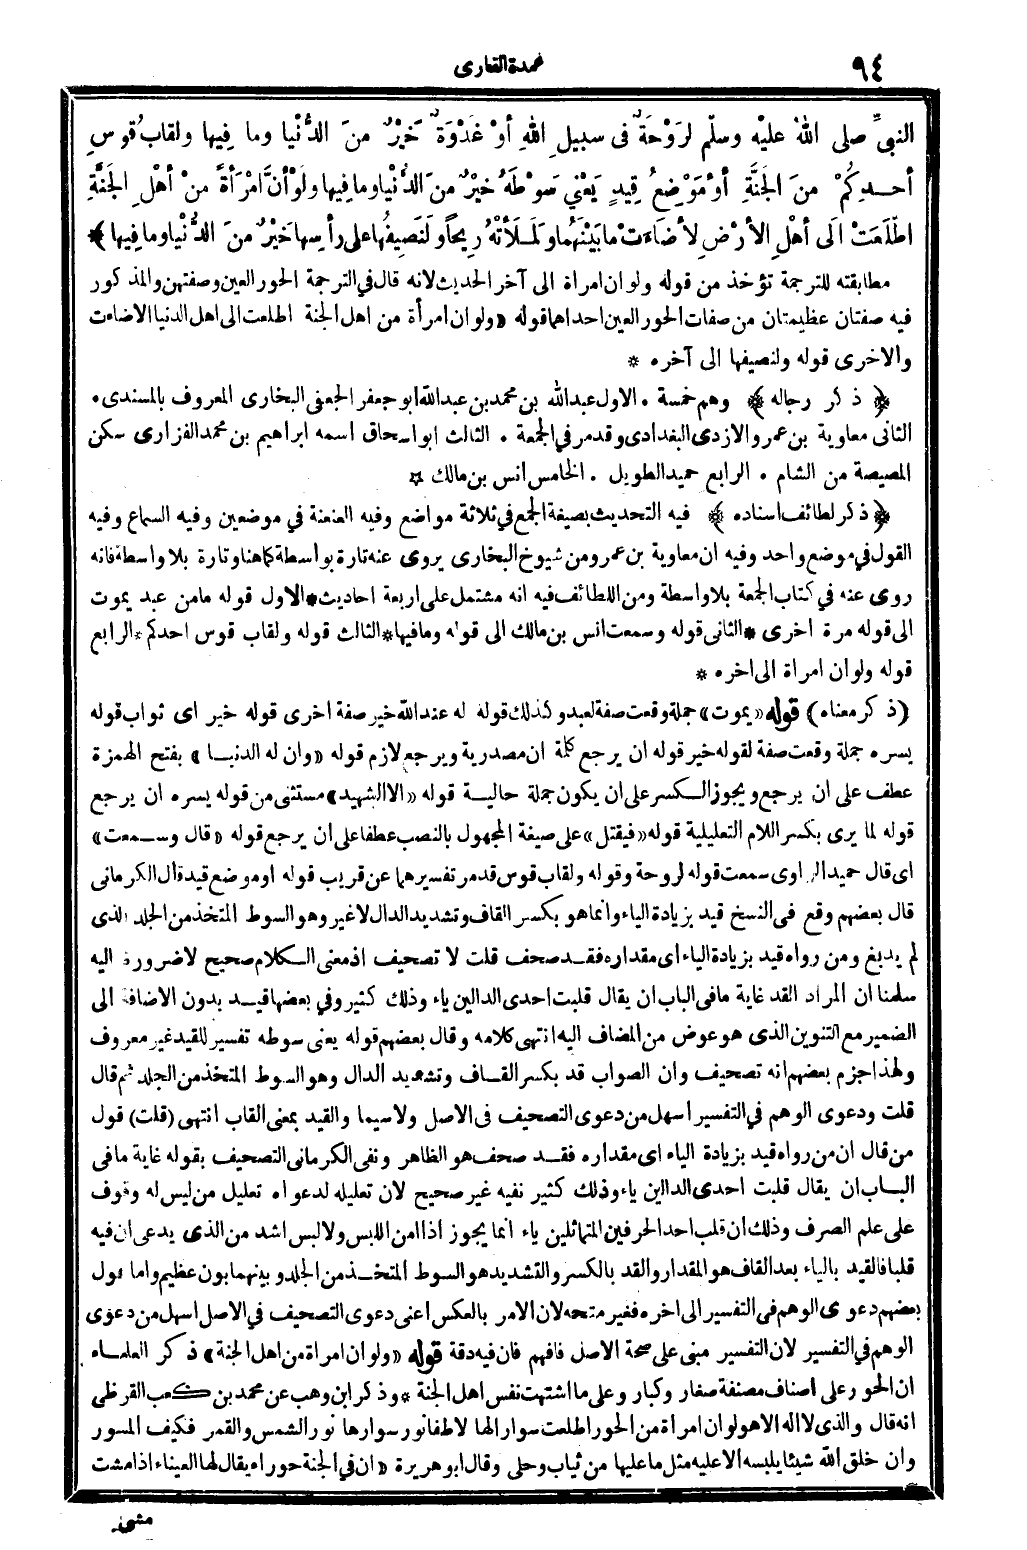 ٩٤
عمدة القارى
النبيِّ صلى اللهُ عليْه وسلّم لَرَوْحَةٌ فى سبيل اللهِ أوْ غَدْوَةٌ خَيْرٌ منَ الدُّنْيا وما فِيها ولقابُ قوسِ
أحدِكُمْ منَ الجَنَّةِ أوْ مَوْضِعُ قِيدٍ يَعْنِي سَوْطَهُ خيْرٌ منَ الدُّنْيا وما فيها ولَوْ أنَّ امْرَأةً منْ أهْلِ الجَنَّةِ
اطّلَعَتْ الَى أهْلِ الأرْضِ لأضَاءَتْ ما بَيْنَهُما ولَمَلأتْهُ رِيحاً ولَنَصِيفُها على رأسِها خَيْرٌ منَ الدُّنْيا وما فِيها ﴾
مطابقته للترجمة تؤخذ من قوله ولو ان امراة الى آخر الحديث لانه قال في الترجمة الحور العين وصفتهن والمذكور
فيه صفتان عظيمتان من صفات الحور العين احداهما قوله «ولو ان امرأة من اهل الجنة اطلعت الى اهل الدنيا لاضاءت
والاخرى قوله ولنصيفها الى آخره *
﴿ ذكر رجاله ﴾ وهم خمسة . الاول عبد الله بن محمد بن عبد الله أبو جعفر الجعفي البخارى المعروف بالمسندى .
الثانى معاوية بن عمرو الازدى البغدادى وقد مر في الجمعة . الثالث ابو اسحاق اسمه ابراهيم بن محمد الفزارى سكن
المصيصة من الشام . الرابع حميد الطويل . الخامس انس بن مالك *
﴿ ذكر لطائف اسناده ﴾ فيه التحديث بصيغة الجمع في ثلاثة مواضع وفيه العنعنة في موضعين وفيه السماع وفيه
القول في موضع واحد وفيه ان معاوية بن عمرو من شيوخ البخارى يروى عنه تارة بواسطة كما هنا وتارة بلا واسطة فانه
روى عنه في كتاب الجمعة بلا واسطة ومن اللطائف فيه انه مشتمل على اربعة احاديث * الاول قوله ما من عبد يموت
الى قوله مرة اخرى * الثانى قوله وسمعت انس بن مالك الى قوله وما فيها * الثالث قوله ولقاب قوس احدكم * الرابع
قوله ولو ان امراة الى اخره *
(ذكر معناه) قوله «يموت» جملة وقعت صفة لعبد وكذلك قوله له عند الله خير صفة اخرى قوله خير اى ثواب قوله
يسره جملة وقعت صفة لقوله خير قوله ان يرجع كلمة ان مصدرية ويرجع لازم قوله «وان له الدنيا» بفتح الهمزة
عطف على ان يرجع ويجوز الكسر على ان يكون جملة حالية قوله «الا الشهيد» مستثنى من قوله يسره ان يرجع
قوله لما يرى بكسر اللام التعليلية قوله «فيقتل» على صيغة المجهول بالنصب عطفا على ان يرجع قوله «قال وسمعت»
اى قال حميد الراوى سمعت قوله لروحة وقوله ولقاب قوس قد مر تفسيرهما عن قريب قوله او موضع قيد قال الكرمانى
قال بعضهم وقع فى النسخ قيد بزيادة الياء وانما هو بكسر القاف وتشديد الدال لا غير وهو السوط المتخذ من الجلد الذى
لم يدبغ ومن رواه قيد بزيادة الياء اى مقداره فقد صحف قلت لا تصحيف اذ معنى الكلام صحيح لا ضرورة اليه
سلمنا ان المراد القد غاية ما فى الباب ان يقال قلبت احدى الدالين ياء وذلك كثير وفي بعضها قيد بدون الاضافة الى
الضمير مع التنوين الذى هو عوض من المضاف اليه انتهى كلامه وقال بعضهم قوله يعنى سوطه تفسير للقيد غير معروف
ولهذا جزم بعضهم انه تصحيف وان الصواب قد بكسر القاف وتشديد الدال وهو السوط المتخذ من الجلد ثم قال
قلت ودعوى الوهم في التفسير اسهل من دعوى التصحيف فى الاصل ولا سيما والقيد بمعنى القاب انتهى (قلت) قول
من قال ان من رواه قيد بزيادة الياء اى مقداره فقد صحف هو الظاهر ونفى الكرمانى التصحيف بقوله غاية ما فى
الباب ان يقال قلبت احدى الدالين ياء وذلك كثير نفيه غير صحيح لان تعليله لدعواه تعليل من ليس له وقوف
على علم الصرف وذلك ان قلب احد الحرفين المتماثلين ياء انما يجوز اذا امن اللبس ولا لبس اشد من الذى يدعى ان فيه
قلبا فالقيد بالياء بعد القاف هو المقدار والقد بالكسر والتشديد هو السوط المتخذ من الجلد وبينهما بون عظيم واما قول
بعضهم دعوى الوهم فى التفسير الى اخره فغير متجه لان الامر بالعكس اعنى دعوى التصحيف في الاصل اسهل من دعوى
الوهم في التفسير لان التفسير مبنى على صحة الاصل فافهم فان فيه دقة قوله «ولو ان امراة من اهل الجنة» ذكر العلماء
ان الحور على اصناف مصنفة صغار وكبار وعلى ما اشتهت نفس اهل الجنة * وذكر ابن وهب عن محمد بن كعب القرظى
انه قال والذى لا اله الا هو لو ان امراة من الحور اطلعت سوارا لها لاطفا نور سوارها نور الشمس والقمر فكيف المسور
وان خلق الله شيئا يلبسه الا عليه مثل ما عليها من ثياب وحلى وقال ابو هريرة «ان في الجنة حوراء يقال لها العيناء اذا مشت
مشى